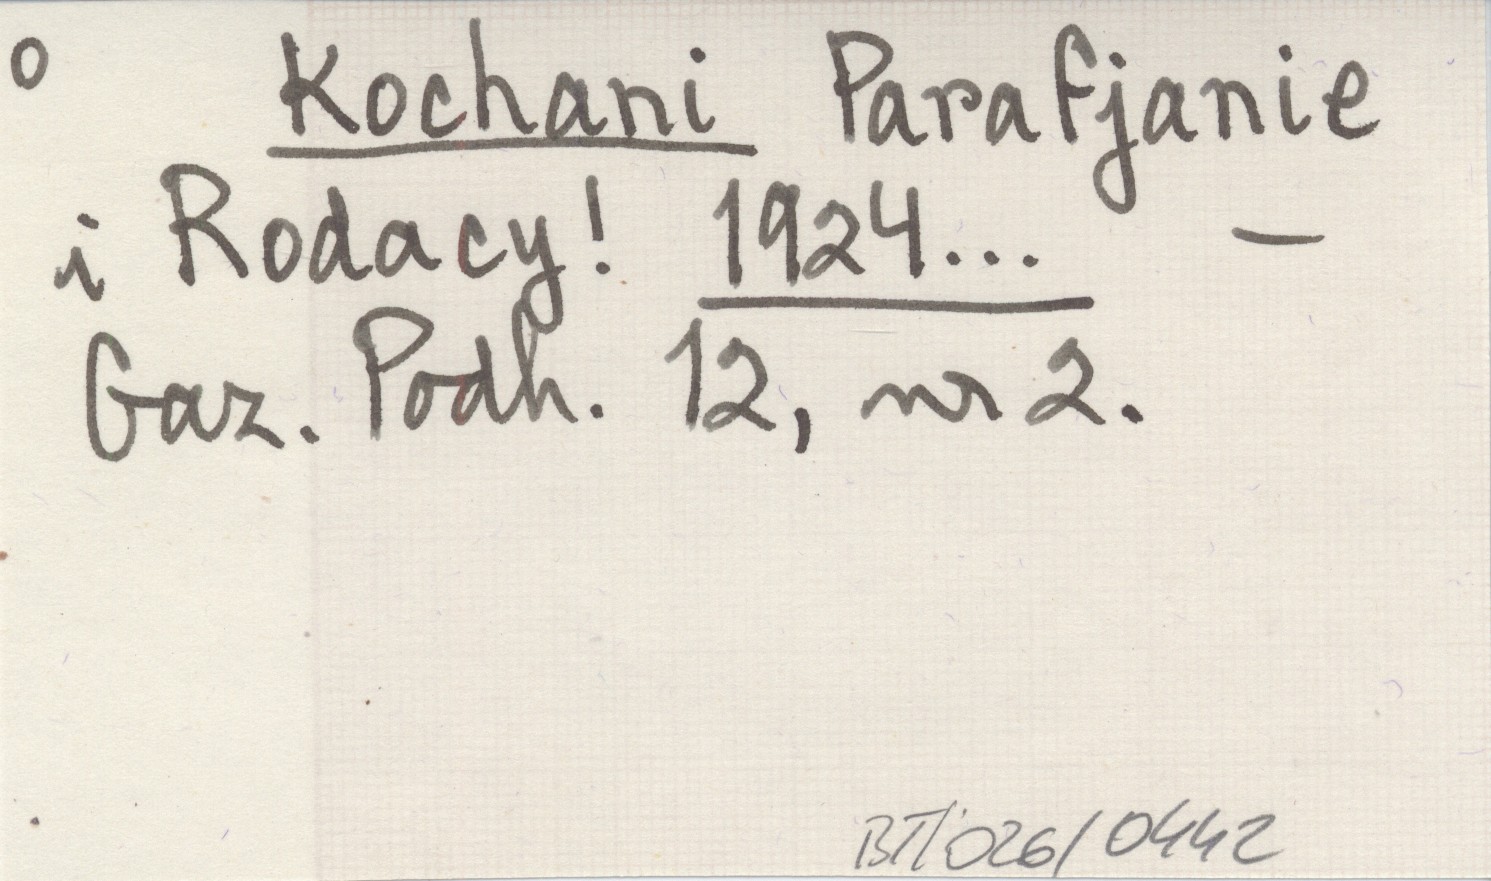 o Kochani Parafjanie
i Rodacy! 1924... —
Gaz. Podh. 12, nr 2.
BT/026/0442